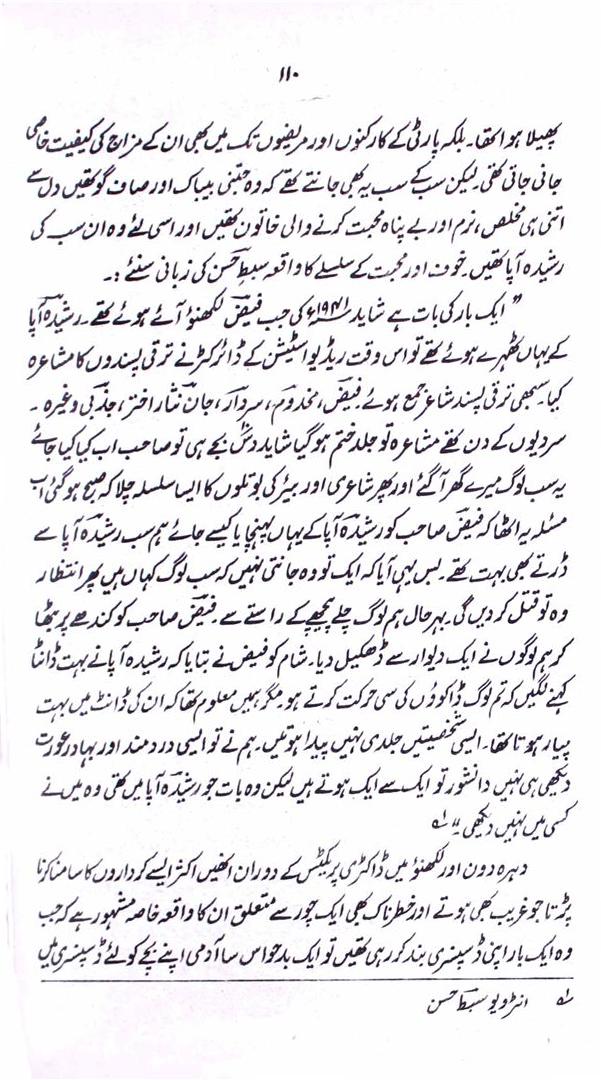 ۱۱۰
پھیلا ہوا تھا۔ بلکہ پارٹی کے کارکنوں اور مریضوں تک میں بھی ان کے مزاج کی کیفیت خاصی
جانی جاتی تھی۔ لیکن سب کے سب یہ بھی جانتے تھے کہ وہ جتنی بیباک اور صاف گو تھیں دل سے
اتنی ہی مخلص، نرم اور بے پناہ محبت کرنے والی خاتون تھیں اور اسی لئے وہ ان سب کی
رشیدہ آپا تھیں۔ خوف اور محبت کے سلسلے کا واقعہ سبط حسن کی زبانی سنئے:۔
” ایک بار کی بات ہے شاید ۱۹۴۱ء کی جب فیض لکھنؤ آئے ہوئے تھے۔ رشیدہ آپا
کے یہاں ٹھہرے ہوئے تھے تو اس وقت ریڈیو اسٹیشن کے ڈائرکٹر نے ترقی پسندوں کا مشاعرہ
کیا۔ سبھی ترقی پسند شاعر جمع ہوئے۔ فیض، مخدوم، سردار، جان نثار اختر، جذبی وغیرہ۔
سردیوں کے دن تھے مشاعرہ تو جلد ختم ہو گیا شاید دس بجے ہی تو صاحب اب کیا کیا جائے
یہ سب لوگ میرے گھر آ گئے اور پھر شاعری اور بیئر کی بوتلوں کا ایسا سلسلہ چلا کہ صبح ہو گئی اب
مسئلہ یہ اٹھا کہ فیض صاحب کو رشیدہ آپا کے یہاں پہنچایا کیسے جائے ہم سب رشیدہ آپا سے
ڈرتے بھی بہت تھے۔ بس یہی آیا کہ ایک تو وہ جانتی نہیں کہ سب لوگ کہاں ہیں پھر انتظار
وہ تو قتل کر دیں گی۔ بہرحال ہم لوگ چلے پیچھے کے راستے سے۔ فیض صاحب کو کندھے پر بٹھا
کر ہم لوگوں نے ایک دیوار سے ڈھکیل دیا۔ شام کو فیض نے بتایا کہ رشیدہ آپا نے بہت ڈانٹا
کہنے لگیں کہ تم لوگ ڈاکوؤں کی سی حرکت کرتے ہو۔ مگر ہمیں معلوم تھا کہ ان کی ڈانٹ میں بہت
پیار ہوتا تھا۔ ایسی شخصیتیں جلدی نہیں پیدا ہوتیں۔ ہم نے تو ایسی دردمند اور بہادر عورت
دیکھی ہی نہیں دانشور تو ایک سے ایک ہوتے ہیں لیکن وہ بات جو رشیدہ آپا میں تھی وہ میں نے
کسی میں نہیں دیکھی“ ؂۱
دہرہ دون اور لکھنؤ میں ڈاکٹری پریکٹس کے دوران انھیں اکثر ایسے کرداروں کا سامنا کرنا
پڑتا جو غریب بھی ہوتے اور خطرناک بھی ایک چور سے متعلق ان کا واقعہ خاصہ مشہور ہے کہ جب
وہ ایک بار اپنی ڈسپنسری بند کر رہی تھیں تو ایک بدحواس سا آدمی اپنے بچے کو لئے ڈسپنسری میں
؂۱ انٹرویو سبط حسن